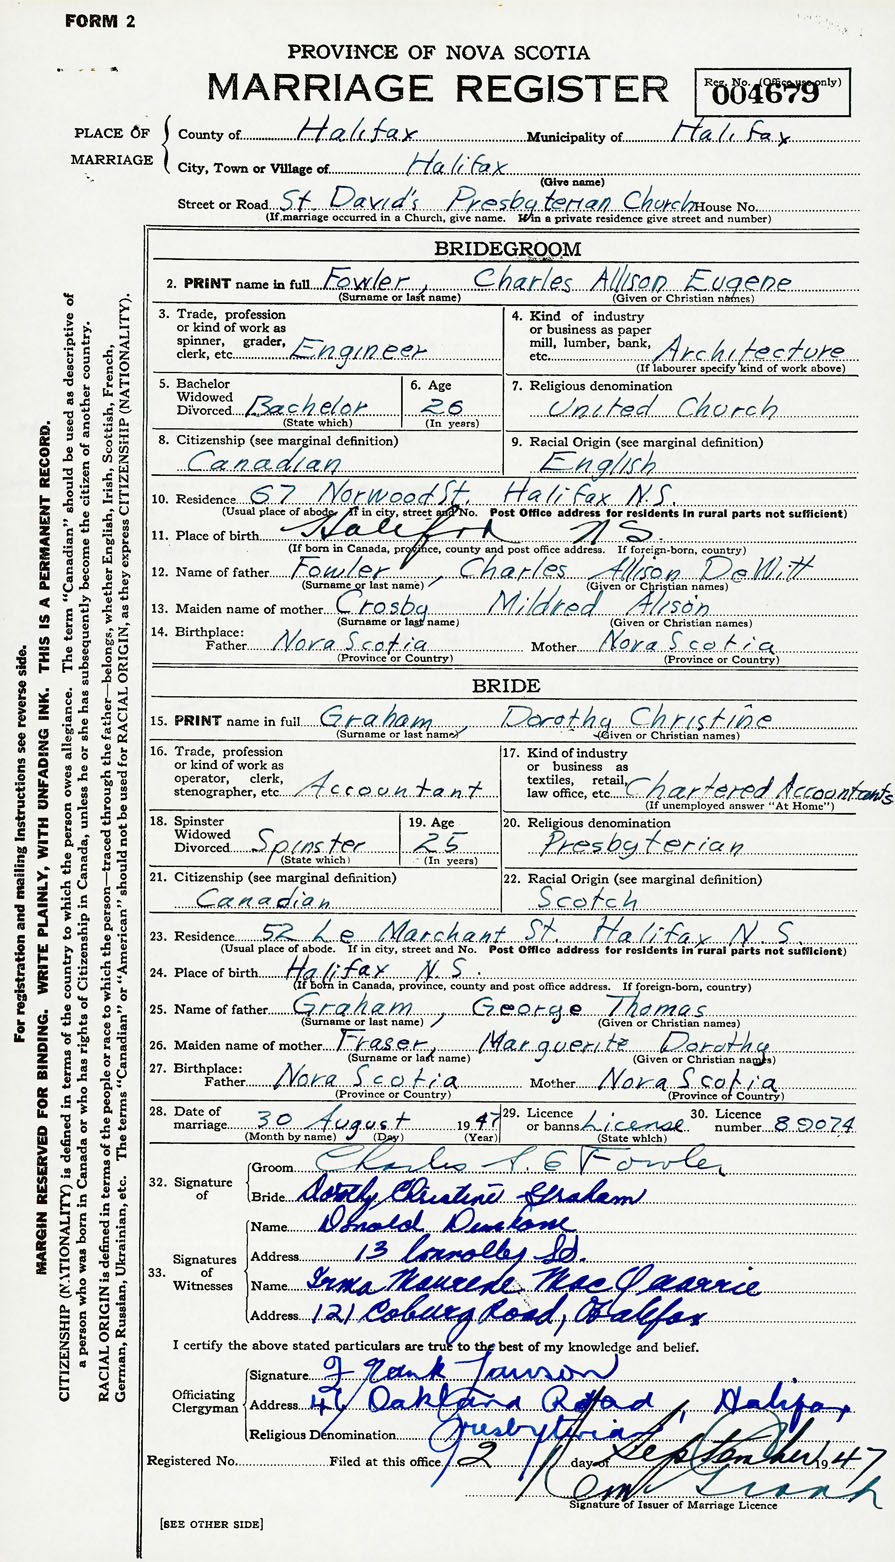 FORM 2
PROVINCE OF NOVA SCOTIA
MARRIAGE REGISTER
Reg. No. (Office use only)
004679
PLACE OF MARRIAGE
County of Halifax Municipality of Halifax
City, Town or Village of Halifax
(Give name)
Street or Road St. David's Presbyterian Church House No.
(If marriage occurred in a Church, give name. If in a private residence give street and number)
BRIDEGROOM
2. PRINT name in full Fowler, Charles Allison Eugene
(Surname or last name) (Given or Christian names)
3. Trade, profession or kind of work as spinner, grader, clerk, etc. Engineer
4. Kind of industry or business as paper mill, lumber, bank, etc. Architecture
(If labourer specify kind of work above)
5. Bachelor Widowed Divorced Bachelor
(State which)
6. Age 26
(In years)
7. Religious denomination
United Church
8. Citizenship (see marginal definition)
Canadian
9. Racial Origin (see marginal definition)
English
10. Residence 67 Norwood St. Halifax N.S.
(Usual place of abode. If in city, street and No. Post Office address for residents in rural parts not sufficient)
11. Place of birth N S.
(If born in Canada, province, county and post office address. If foreign-born, country)
12. Name of father Fowler, Charles Allison DeWitt
(Surname or last name) (Given or Christian names)
13. Maiden name of mother Crosby Mildred Alison
(Surname or last name) (Given or Christian names)
14. Birthplace:
Father Nova Scotia Mother Nova Scotia
(Province or Country) (Province or Country)
BRIDE
15. PRINT name in full Graham, Dorothy Christine
(Surname or last name) (Given or Christian names)
16. Trade, profession or kind of work as operator, clerk, stenographer, etc. Accountant
17. Kind of industry or business as textiles, retail, law office, etc. Chartered Accountants
(If unemployed answer "At Home")
18. Spinster Widowed Divorced Spinster
(State which)
19. Age 25
(In years)
20. Religious denomination
Presbyterian
21. Citizenship (see marginal definition)
Canadian
22. Racial Origin (see marginal definition)
Scotch
23. Residence 52 Le Marchant St. Halifax N.S.
(Usual place of abode. If in city, street and No. Post Office address for residents in rural parts not sufficient)
24. Place of birth Halifax N.S.
(If born in Canada, province, county and post office address. If foreign-born, country)
25. Name of father Graham, George Thomas
(Surname or last name) (Given or Christian names)
26. Maiden name of mother Fraser, Marguerite Dorothy
(Surname or last name) (Given or Christian names)
27. Birthplace:
Father Nova Scotia Mother Nova Scotia
(Province or Country) (Province of Country)
28. Date of marriage 30 August 1947
(Month by name) (Day) (Year)
29. Licence or banns License
(State which)
30. Licence number 89074
32. Signature of
Groom Charles A. E Fowler
Bride Dorothy Christine Graham
33. Signatures of Witnesses
Name Donald
Address 13 Connolley St.
Name Irma Maurene MacQuarrie
Address 121 Coburg Road, Halifax
I certify the above stated particulars are true to the best of my knowledge and belief.
Officiating Clergyman
Signature Frank Lawson
Address 41 Oakland Road, Halifax
Religious Denomination Presbyterian
Registered No. Filed at this office 2 day of September 1947
Signature of Issuer of Marriage Licence
[SEE OTHER SIDE]
For registration and mailing instructions see reverse side.
MARGIN RESERVED FOR BINDING. WRITE PLAINLY, WITH UNFADING INK. THIS IS A PERMANENT RECORD.
CITIZENSHIP (NATIONALITY) is defined in terms of the country to which the person owes allegiance. The term "Canadian" should be used as descriptive of
a person who was born in Canada or who has rights of Citizenship in Canada, unless he or she has subsequently become the citizen of another country.
RACIAL ORIGIN is defined in terms of the people or race to which the person—traced through the father—belongs, whether English, Irish, Scottish, French,
German, Russian, Ukrainian, etc. The terms "Canadian" or "American" should not be used for RACIAL ORIGIN, as they express CITIZENSHIP (NATIONALITY).